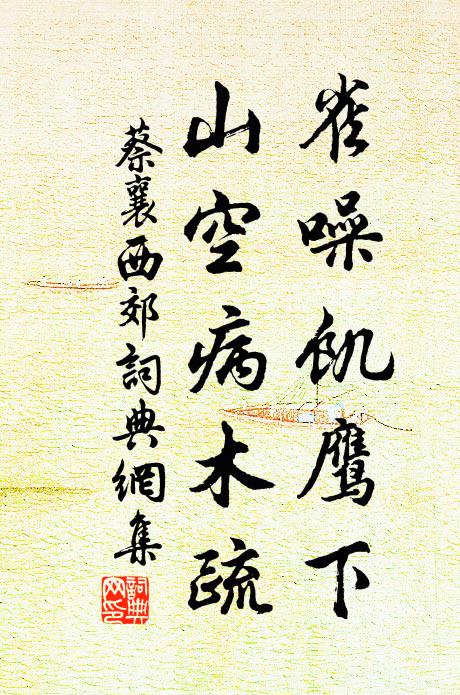 雀噪飢鹰下
山空病木疏
蔡襄西郊詞典網集
詞典网印